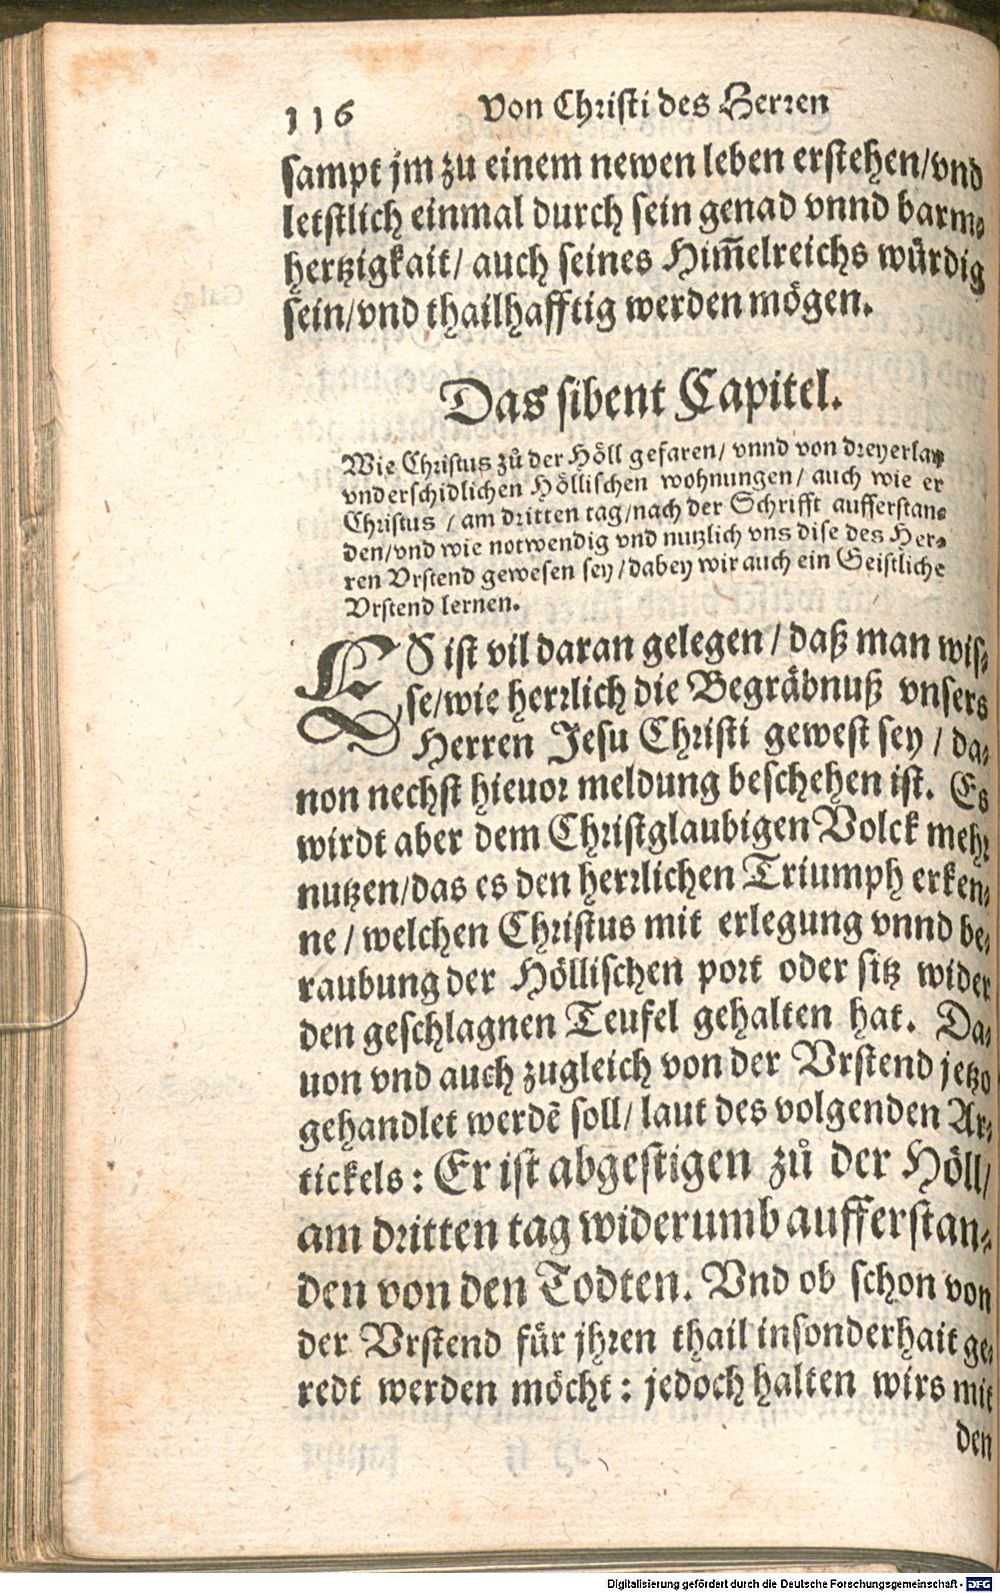 116 Von Christi des Herren
sampt jm zu einem newen leben erstehen/vnd
letstlich einmal durch sein genad vnnd barm-
hertzigkait/ auch seines Him̃elreichs würdig
sein/vnd thailhafftig werden mögen.
Das sibent Capitel.
Wie Christus zů der Höll gefaren/ vnnd von dreyerlay
vnderschidlichen Höllischen wohnungen/ auch wie er
Christus / am dritten tag/nach der Schrifft aufferstan-
den/vnd wie notwendig vnd nutzlich vns dise des Her-
ren Vrstend gewesen sey/dabey wir auch ein Geistliche
Vrstend lernen.
ES ist vil daran gelegen / daß man wis-
se/wie herrlich die Begräbnuß vnsers
Herren Jesu Christi gewest sey / da-
non nechst hieuor meldung beschehen ist. Es
wirdt aber dem Christglaubigen Volck mehr
nutzen/das es den herrlichen Triumph erken-
ne / welchen Christus mit erlegung vnnd be-
raubung der Höllischen port oder sitz wider
den geschlagnen Teufel gehalten hat. Da-
uon vnd auch zugleich von der Vrstend jetzo
gehandlet werdẽ soll/ laut des volgenden Ar-
tickels: Er ist abgestigen zů der Höll/
am dritten tag widerumb aufferstan-
den von den Todten. Vnd ob schon von
der Vrstend für jhren thail insonderhait ge-
redt werden möcht: jedoch halten wirs mit
den
Digitalisierung gefördert durch die Deutsche Forschungsgemeinschaft - DFG